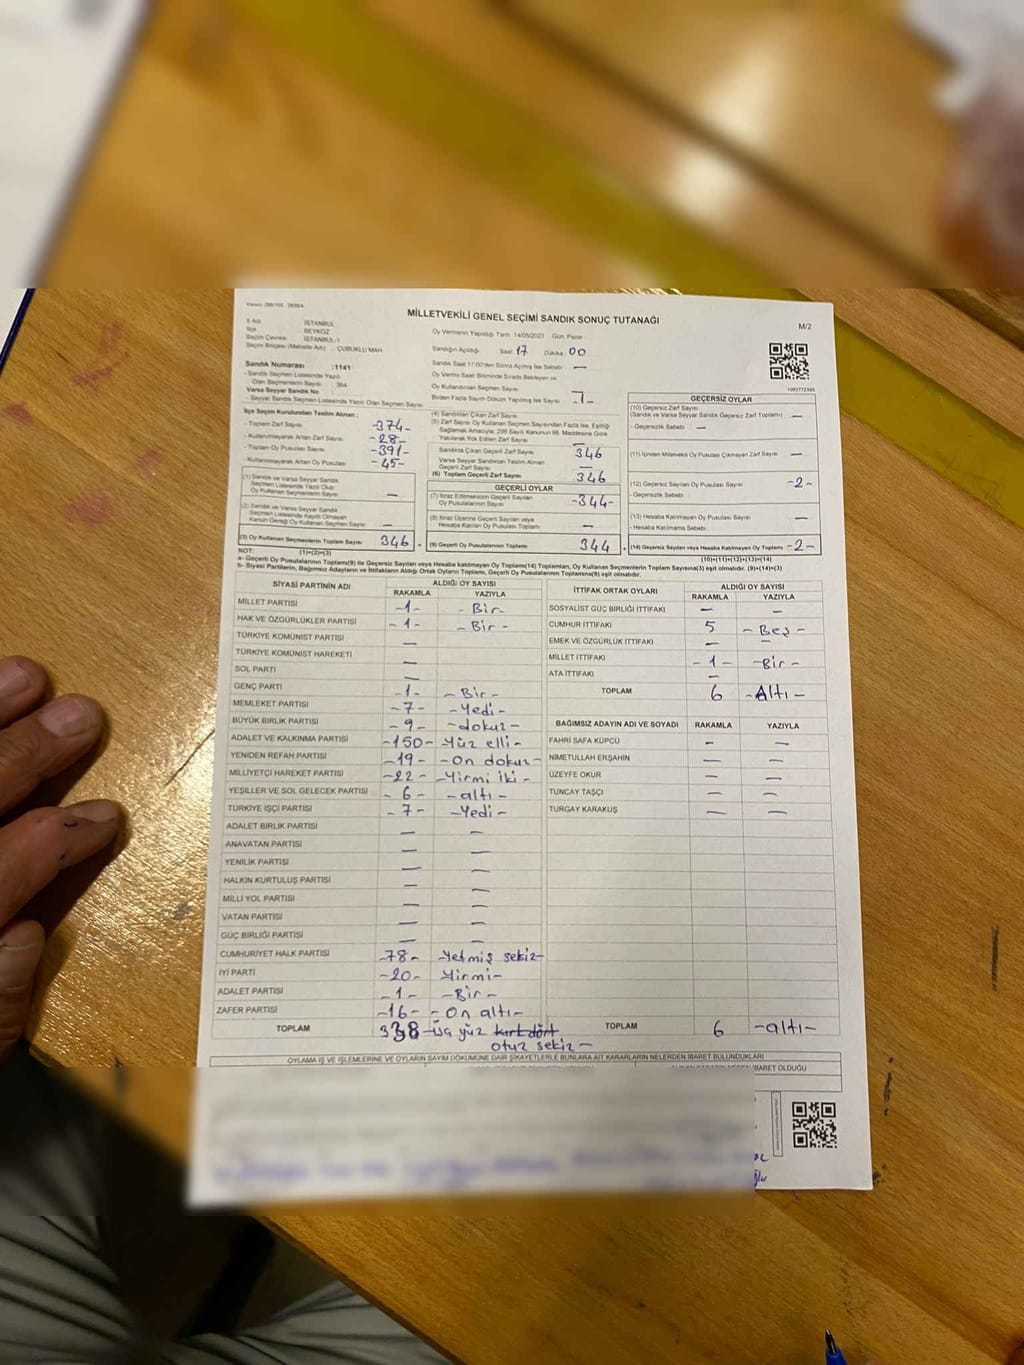 MİLLETVEKİLİ GENEL SEÇİMİ SANDIK SONUÇ TUTANAĞI
M/2
İl Adı : İSTANBUL
İlçe : BEYKOZ
Seçim Çevresi : İSTANBUL-1
Seçim Bölgesi (Mahalle Adı) : ÇUBUKLU MAH
Oy Vermenin Yapıldığı Tarih: 14/05/2023 Gün: Pazar
Sandığın Açıldığı Saat 17 Dakika 00
Sandık Saat 17:00'den Sonra Açılmış İse Sebebi: —
Sandık Numarası :1141
- Sandık Seçmen Listesinde Yazılı
Olan Seçmenlerin Sayısı : 364
Varsa Seyyar Sandık No :
- Seyyar Sandık Seçmen Listesinde Yazılı Olan Seçmen Sayısı:
Oy Verme Saati Bitiminde Sırada Bekleyen ve
Oy Kullandırılan Seçmen Sayısı
Birden Fazla Sayım Döküm Yapılmış İse Sayısı
İlçe Seçim Kurulundan Teslim Alınan ;
- Toplam Zarf Sayısı -374-
- Kullanılmayarak Artan Zarf Sayısı -28-
- Toplam Oy Pusulası Sayısı -391-
- Kullanılmayarak Artan Oy Pusulası -45-
(1) Sandık ve Varsa Seyyar Sandık
Seçmen Listesinde Yazılı Olup
Oy Kullanan Seçmenlerin Sayısı —
(2) Sandık ve Varsa Seyyar Sandık
Listesinde Kayıtlı Olmayan
Kanun Gereği Oy Kullanan Seçmen Sayısı —
(3) Oy Kullanan Seçmenlerin Toplam Sayısı 346
(1)+(2)=(3)
(4) Sandıktan Çıkan Zarf Sayısı
(5) Zarf Sayısı Oy Kullanan Seçmen Sayısından Fazla İse, Eşitliği
Sağlamak Amacıyla, 298 Sayılı Kanunun 98. Maddesine Göre
Yakılarak Yok Edilen Zarf Sayısı
Sandıkta Çıkan Geçerli Zarf Sayısı 346
Varsa Seyyar Sandıktan Teslim Alınan
Geçerli Zarf Sayısı —
(6) Toplam Geçerli Zarf Sayısı 346
GEÇERLİ OYLAR
(7) İtiraz Edilmeksizin Geçerli Sayılan
Oy Pusulalarının Sayısı -344-
(8) İtiraz Üzerine Geçerli Sayılan veya
Hesaba Katılan Oy Pusulası Toplamı —
(9) Geçerli Oy Pusulalarının Toplamı 344
GEÇERSİZ OYLAR
(10) Geçersiz Zarf Sayısı
(Sandık ve Varsa Seyyar Sandık Geçersiz Zarf Toplamı) —
- Geçersizlik Sebebi : —
(11) İçinden Milletvekili Oy Pusulası Çıkmayan Zarf Sayısı —
(12) Geçersiz Sayılan Oy Pusulası Sayısı -2-
- Geçersizlik Sebebi
(13) Hesaba Katılmayan Oy Pusulası Sayısı —
- Hesaba Katılmama Sebebi
(14) Geçersiz Sayılan veya Hesaba Katılmayan Oy Toplamı -2-
(10)+(11)+(12)+(13)=(14)
NOT:
a- Geçerli Oy Pusulalarının Toplamı(9) ile Geçersiz Sayılan veya Hesaba katılmayan Oy Toplamı(14) Toplamları, Oy Kullanan Seçmenlerin Toplam Sayısına(3) eşit olmalıdır. (9)+(14)=(3)
b- Siyasi Partilerin, Bağımsız Adayların ve İttifakların Aldığı Ortak Oyların Toplamı, Geçerli Oy Pusulalarının Toplamına(9) eşit olmalıdır.
SİYASİ PARTİNİN ADI ALDIĞI OY SAYISI
RAKAMLA YAZIYLA
MİLLET PARTİSİ -1- -Bir-
HAK VE ÖZGÜRLÜKLER PARTİSİ -1- -Bir-
TÜRKİYE KOMÜNİST PARTİSİ —
TÜRKİYE KOMÜNİST HAREKETİ —
SOL PARTİ —
GENÇ PARTİ -1- -Bir-
MEMLEKET PARTİSİ -7- -Yedi-
BÜYÜK BİRLİK PARTİSİ -9- -dokuz-
ADALET VE KALKINMA PARTİSİ -150- -Yüz elli-
YENİDEN REFAH PARTİSİ -19- -On dokuz-
MİLLİYETÇİ HAREKET PARTİSİ -22- -Yirmi iki-
YEŞİLLER VE SOL GELECEK PARTİSİ -6- -altı-
TÜRKİYE İŞÇİ PARTİSİ -7- -Yedi-
ADALET BİRLİK PARTİSİ — —
ANAVATAN PARTİSİ — —
YENİLİK PARTİSİ — —
HALKIN KURTULUŞ PARTİSİ — —
MİLLİ YOL PARTİSİ — —
VATAN PARTİSİ — —
GÜÇ BİRLİĞİ PARTİSİ — —
CUMHURİYET HALK PARTİSİ -78- -Yetmiş sekiz-
İYİ PARTİ -20- -Yirmi-
ADALET PARTİSİ -1- -Bir-
ZAFER PARTİSİ -16- -On altı-
TOPLAM 338 -üç yüz kırk dört
otuz sekiz-
İTTİFAK ORTAK OYLARI ALDIĞI OY SAYISI
RAKAMLA YAZIYLA
SOSYALİST GÜÇ BİRLİĞİ İTTİFAKI — —
CUMHUR İTTİFAKI 5 -Beş-
EMEK VE ÖZGÜRLÜK İTTİFAKI — —
MİLLET İTTİFAKI -1- -Bir-
ATA İTTİFAKI —
TOPLAM 6 -Altı-
BAĞIMSIZ ADAYIN ADI VE SOYADI RAKAMLA YAZIYLA
FAHRİ SAFA KÜPCÜ — —
NİMETULLAH ERŞAHİN — —
ÜZEYFE OKUR — —
TUNCAY TAŞÇI — —
TURGAY KARAKUŞ — —
TOPLAM 6 -altı-
OYLAMA İŞ VE İŞLEMLERİNE VE OYLARIN SAYIM DÖKÜMÜNE DAİR ŞİKAYETLERLE BUNLARA AİT KARARLARIN NELERDEN İBARET BULUNDUKLARI
İBARET OLDUĞU